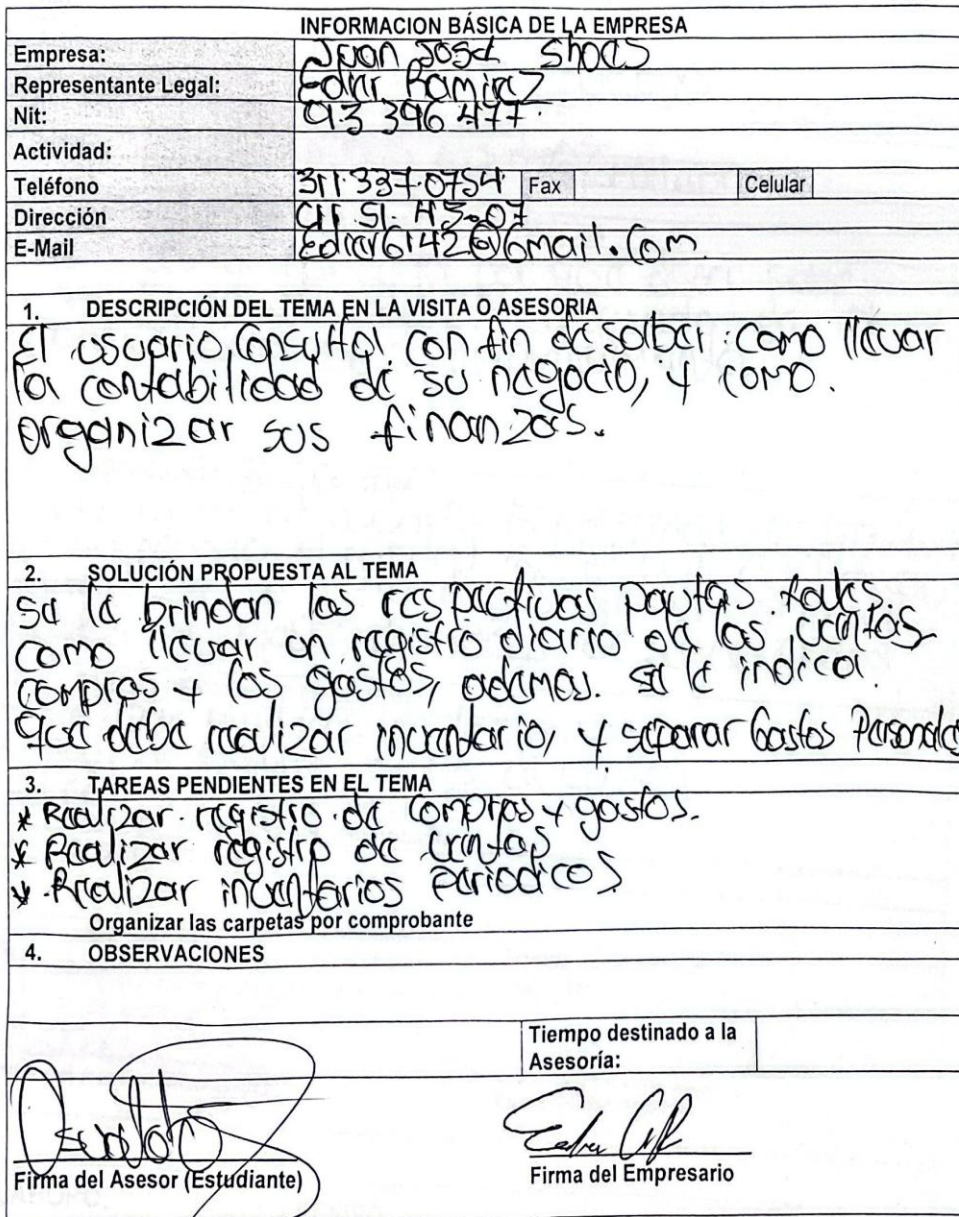 INFORMACION BÁSICA DE LA EMPRESA
Empresa: Juan José Shoes
Representante Legal: Edier Ramirez
Nit: 93 396 477.
Actividad:
Teléfono 311.337.0754 Fax Celular
Dirección 51. 45-07
E-Mail Edier6142@Gmail.Com
1. DESCRIPCIÓN DEL TEMA EN LA VISITA O ASESORIA
El usuario, Consulta, con fin de saber: como llevar
la contabilidad de su negocio, y como.
organizar sus finanzas.
2. SOLUCIÓN PROPUESTA AL TEMA
se le brindan las respectivas pautas tales.
como llevar un registro diario de las ventas,
compras y los gastos, ademas. se le indica.
que debe realizar inventario, y separar Gastos Personales
3. TAREAS PENDIENTES EN EL TEMA
* Realizar. registro. de Compras y gastos.
* Realizar registro de ventas
* Realizar inventarios Periodicos
Organizar las carpetas por comprobante
4. OBSERVACIONES
Tiempo destinado a la
Asesoría:
Firma del Asesor (Estudiante) Firma del Empresario